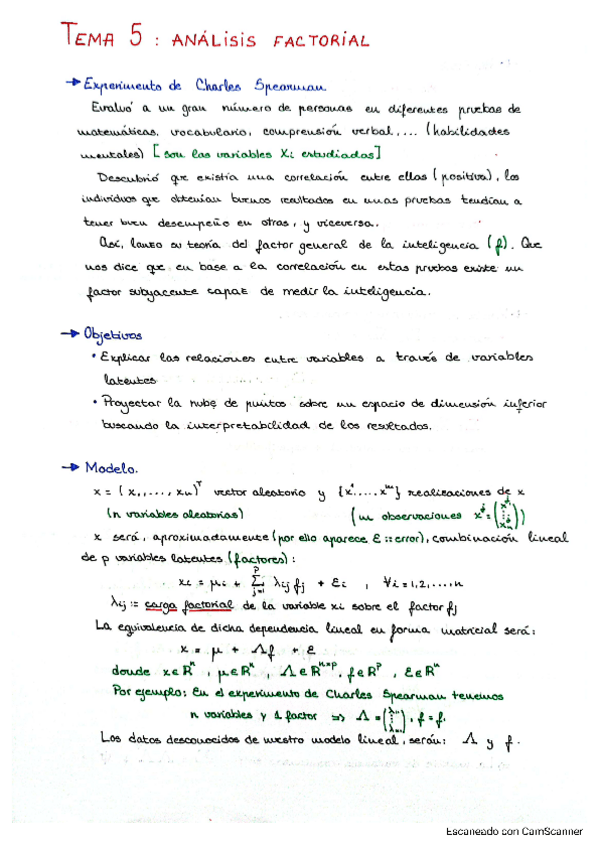 TEMA 5 : ANÁLISIS FACTORIAL
→ Experimento de Charles Spearman
Evaluó a un gran número de personas en diferentes pruebas de
matemáticas, vocabulario, comprensión verbal,... (habilidades
mentales) [son las variables Xi estudiadas]
Descubrió que existía una correlación entre ellas (positiva), los
individuos que obtenían buenos resultados en unas pruebas tendían a
tener buen desempeño en otras, y viceversa.
Así, lanzó su teoría del factor general de la inteligencia (f). Que
nos dice que en base a la correlación en estas pruebas existe un
factor subyacente capaz de medir la inteligencia.
→ Objetivos
• Explicar las relaciones entre variables a través de variables
latentes
• Proyectar la nube de puntos sobre un espacio de dimensión inferior
buscando la interpretabilidad de los resultados.
→ Modelo.
x = (x₁,..., xₙ)ᵀ vector aleatorio y {x¹,..., xᵐ} realizaciones de x
(n variables aleatorias) (m observaciones xʲ = (x₁ʲ ⋮ xₙʲ))
x será, aproximadamente (por ello aparece ε := error), combinación lineal
de p variables latentes (factores):
xi = μi + Σ_{j=1}^{p} λij fj + εi , ∀i=1,2,...,n
λij := carga factorial de la variable xi sobre el factor fj
La equivalencia de dicha dependencia lineal en forma matricial será:
x = μ + Λf + ε
donde x∈ℝⁿ, μ∈ℝⁿ, Λ∈ℝⁿˣᵖ, f∈ℝᵖ, ε∈ℝⁿ
Por ejemplo: En el experimento de Charles Spearman tenemos
n variables y 1 factor ⇒ Λ = , f = f.
Los datos desconocidos de nuestro modelo lineal, serán: Λ y f.
Escaneado con CamScanner